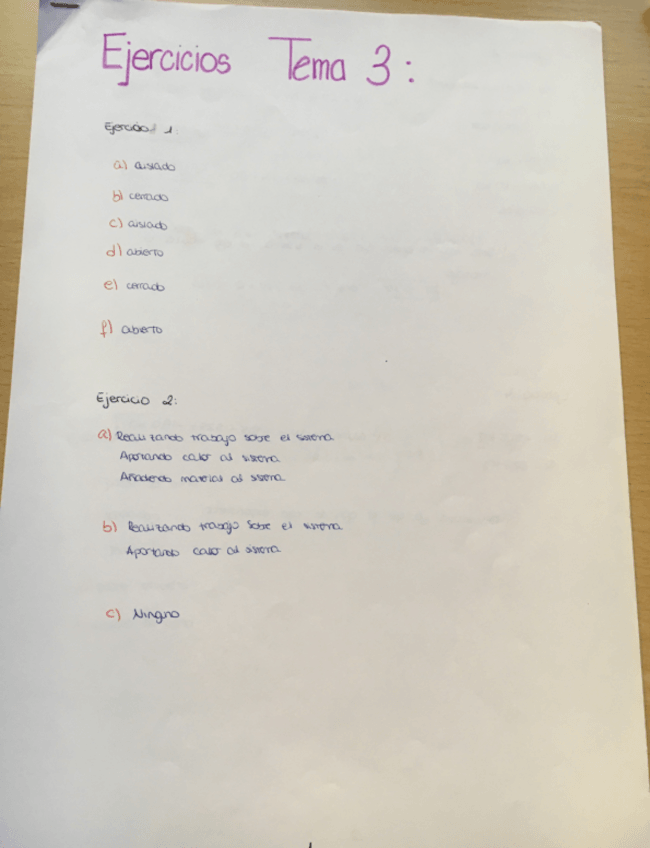 Ejercicios Tema 3:
Ejercicio 1:
a) aislado
b) cerrado
c) aislado
d) abierto
e) cerrado
f) abierto
Ejercicio 2:
a) Realizando trabajo sobre el sistema
Aportando calor al sistema
Añadiendo materia al sistema
b) Realizando trabajo sobre el sistema
Aportando calor al sistema
c) Ninguno